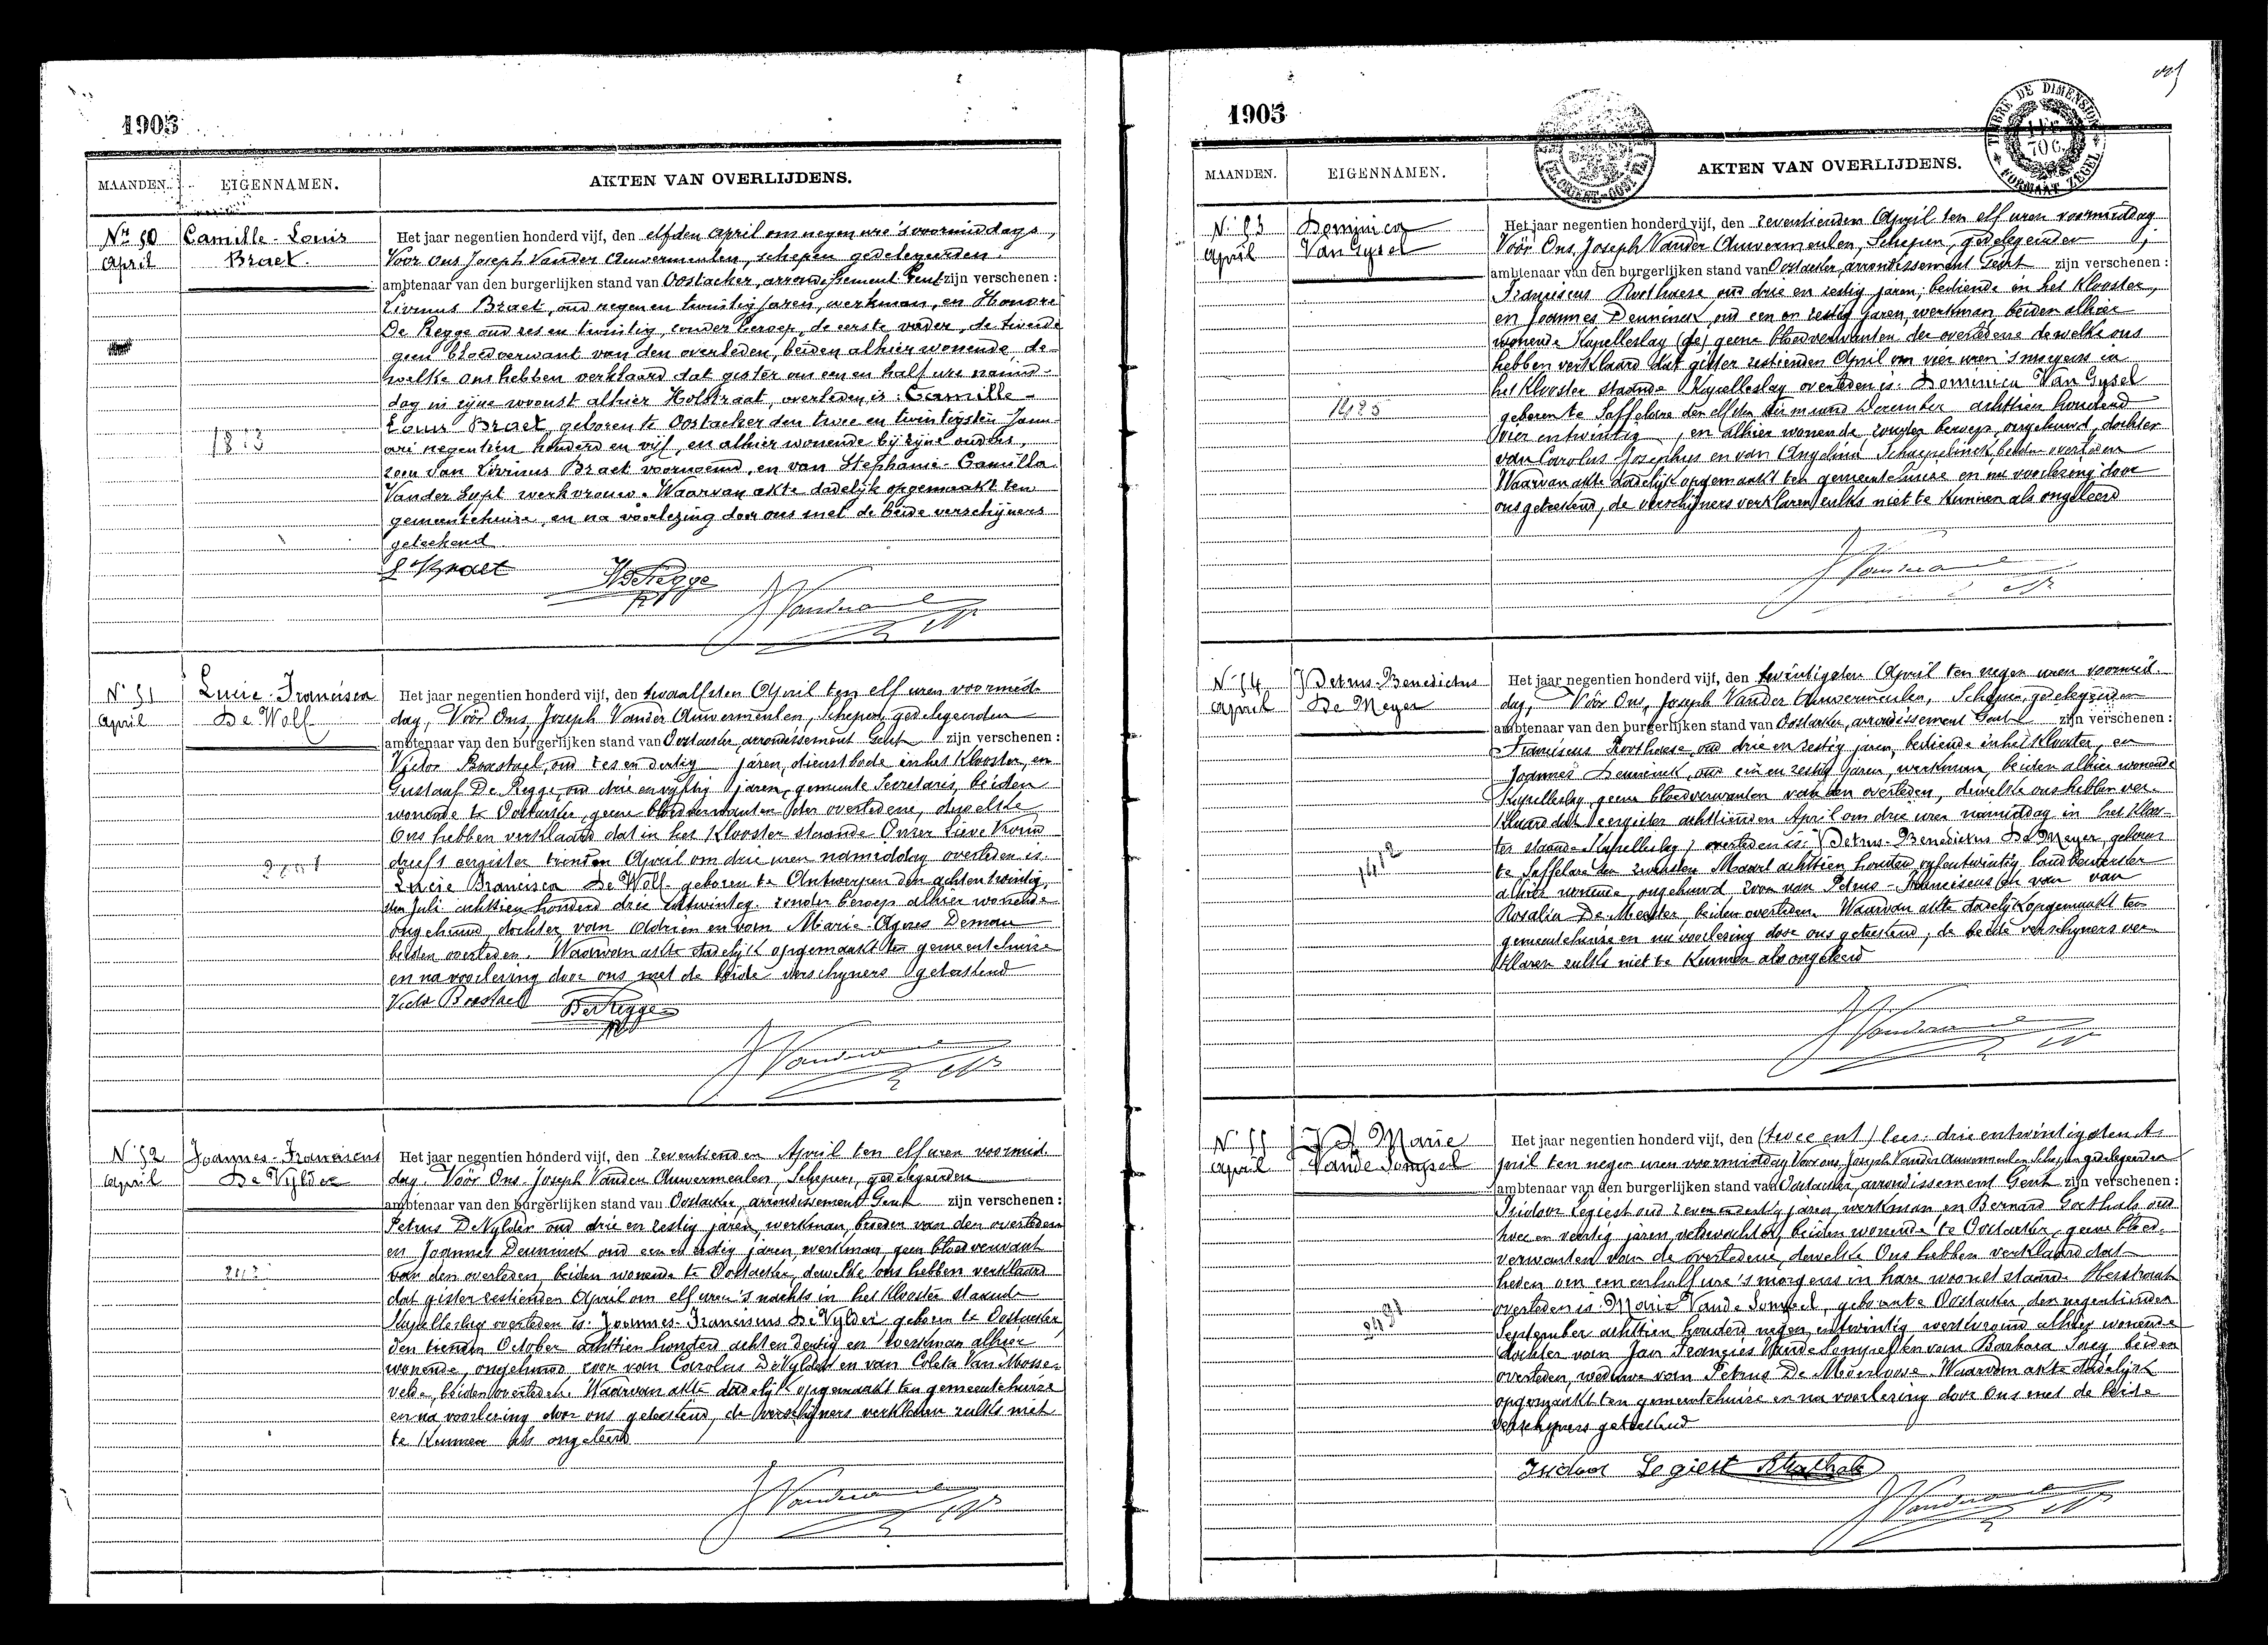 1905
MAANDEN. EIGENNAMEN. AKTEN VAN OVERLIJDENS.
Nr 50 Camille-Louis
April Braet
Het jaar negentien honderd vijf, den elfden april om negen ure 's voormiddags,
Voor ons Joseph Vander Auwermeulen, schepen gedelegeerden
ambtenaar van den burgerlijken stand van Oostacker, arrondissement Gent zijn verschenen:
Livinus Braet, oud negen en twintig jaren, werkman, en Honoré
De Regge oud zes en twintig, zonder beroep, de eerste vader, de tweede
geen bloedverwant van den overleden, beiden alhier wonende, de-
welke ons hebben verklaard dat gister om een en half ure namid-
dag in zijne woonst alhier Holstraat, overleden is: Camille-
Louis Braet, geboren te Oostacker den twee en twintigsten Janu-
ari negentien honderd en vijf, en alhier wonende bij zijne ouders,
zoon van Livinus Braet voornoemd, en van Stephanie-Camilla
Vander Gypt werkvrouw. Waarvan akte dadelijk opgemaakt ten
gemeentehuize, en na voorlezing door ons met de beide verschijners
geteekend
1813
L Braet HDeRegge
N 51 Lucie-Francisca
April De Wolf
Het jaar negentien honderd vijf, den twaalfsten April ten elf uren voormid-
dag, Vóór Ons, Joseph Vander Auwermeulen, Schepen, gedelegeerden
ambtenaar van den burgerlijken stand van Oostacker, arrondissement Gent zijn verschenen:
Victor Braetael, oud zes en dertig jaren, dienstbode in het Klooster, en
Gustaaf De Regge, oud drie en vyftig jaren, gemeente Secretaris, beiden
wonende te Oostacker, geene bloedverwanten der overledene, dewelke
Ons hebben verklaard dat in het Klooster staande Onzer Lieve Vrouw
dreef eergister tienden April om drie uren namiddag overleden is:
Lucie Francisca De Wolf geboren te Antwerpen den achtentwintig
sten Juli achttien honderd drie entwintig, zonder beroep alhier wonende
ongehuwd, dochter van Adrien en van Marie-Agnes Deman
beiden overleden. Waarvan akte dadelijk opgemaakt ten gemeentehuize
en na voorlezing door ons met de beide verschyners geteekend
Victor Braetael DeRegge
N 52 Joannes-Franciscus
April De Vylder
Het jaar negentien honderd vijf, den zeventienden April ten elf uren voormid-
dag. Vóór Ons, Joseph Vander Auwermeulen, Schepen, gedelegeerden
ambtenaar van den burgerlijken stand van Oostacker, arrondissement Gent zijn verschenen:
Petrus DeVylder oud drie en zestig jaren, werkman, broeder van den overleden
en Joannes Denninck oud een en zestig jaren, werkman geen bloedverwant
van den overleden, beiden wonende te Oostacker, dewelke ons hebben verklaard
dat gister zestienden April om elf uren 's nachts in het Klooster staande
Kapelleslag overleden is: Joannes-Franciscus De Vylder geboren te Oostacker,
den tienden October achttien honderd achten dertig en werkman alhier
wonende, ongehuwd, zoon van Carolus DeVylder en van Coleta Van Mosse-
velde, beiden overleden. Waarvan akte dadelijk opgemaakt ten gemeentehuize
en na voorlezing door ons geteekend, de verschijners verklaren zulks niet
te Kunnen als ongeleerd
1905
TIMBRE DE DIMENSION
70 C.
FORMAAT ZEGEL
MAANDEN. EIGENNAMEN. AKTEN VAN OVERLIJDENS.
N. 53 Dominica
April Van Gysel
Het jaar negentien honderd vijf, den zeventienden April ten elf uren voormiddag
Vóór Ons, Joseph Vander Auwermeulen, Schepen, gedelegeerden
ambtenaar van den burgerlijken stand van Oostacker, arrondissement Gent zijn verschenen:
Franciscus Roothaese oud drie en zestig jaren, bediende in het Klooster,
en Joannes Denninck, oud een en zestig jaren, werkman beiden alhier
wonende Kapelleslag (de) geene bloedverwanten der overledene dewelke ons
hebben verklaard dat gister zestienden April om vier uren 's morgens in
het Klooster staande Kapelleslag overleden is: Dominica Van Gysel
geboren te Saffelare den elfden der maand December achttien honderd
vier entwintig, en alhier wonende, zonder beroep, ongehuwd, dochter
van Carolus-Josephus en van Angelina Schaepelinck, beiden overleden
Waarvan akte dadelijk opgemaakt ten gemeentehuize en na voorlezing door
ons geteekend, de verschijners verklaren zulks niet te Kunnen als ongeleerd
1425
N 54 Petrus-Benedictus
April De Meyer
Het jaar negentien honderd vijf, den twintigsten April ten negen uren voormid-
dag, Vóór Ons, Joseph Vander Auwermeulen, Schepen, gedelegeerden
ambtenaar van den burgerlijken stand van Oostacker, arrondissement Gent zijn verschenen:
Franciscus Roothaese, oud drie en zestig jaren, bediende in het Klooster, en
Joannes Denninck, oud een en zestig jaren, werkman, beiden alhier wonende
Kapelleslag, geene bloedverwanten van den overleden, dewelke ons hebben ver-
klaard dat eergister achttienden April om drie uren namiddag in het Kloos-
ter staande Kapelleslag, overleden is: Petrus-Benedictus De Meyer, geboren
te Saffelare den Maart achttien honderd vyfentwintig, landbewerker
alhier wonende, ongehuwd, zoon van Petrus-Franciscus en van van
Rosalia De Meester, beiden overleden. Waarvan akte dadelijk opgemaakt ten
gemeentehuize en na voorlezing door ons geteekend, de beide verschyners ver-
klaren zulks niet te Kunnen als ongeleerd
1412
N 55 Marie
April Vande Sompel
Het jaar negentien honderd vijf, den (twee ent) lees: drie entwintigsten A-
pril ten negen uren voormiddag Voor ons, Joseph Vander Auwermeulen Schepen gedelegeerden
ambtenaar van den burgerlijken stand van Oostacker, arrondissement Gent zijn verschenen:
Isidoor Legiest oud zeven en dertig jaren, werkman en Bernard Goethals oud
twee en veertig jaren, veldwachter, beiden wonende te Oostacker, geene bloed-
verwanten van de overledene, dewelke Ons hebben verklaard dat
heden om een en half ure 's morgens in hare woonst staande Hesstraat
overleden is: Marie Vande Sompel, geboren te Oostacker, den negentienden
September achttien honderd negen entwintig werkvrouw alhier wonende
dochter van Jan Francies Vande Sompel en van Barbara beiden
overleden, weduwe van Petrus De Moerloose. Waarvan akte dadelijk
opgemaakt ten gemeentehuize en na voorlezing door Ons met de beide
verschyners geteekend
Isidoor Legiest